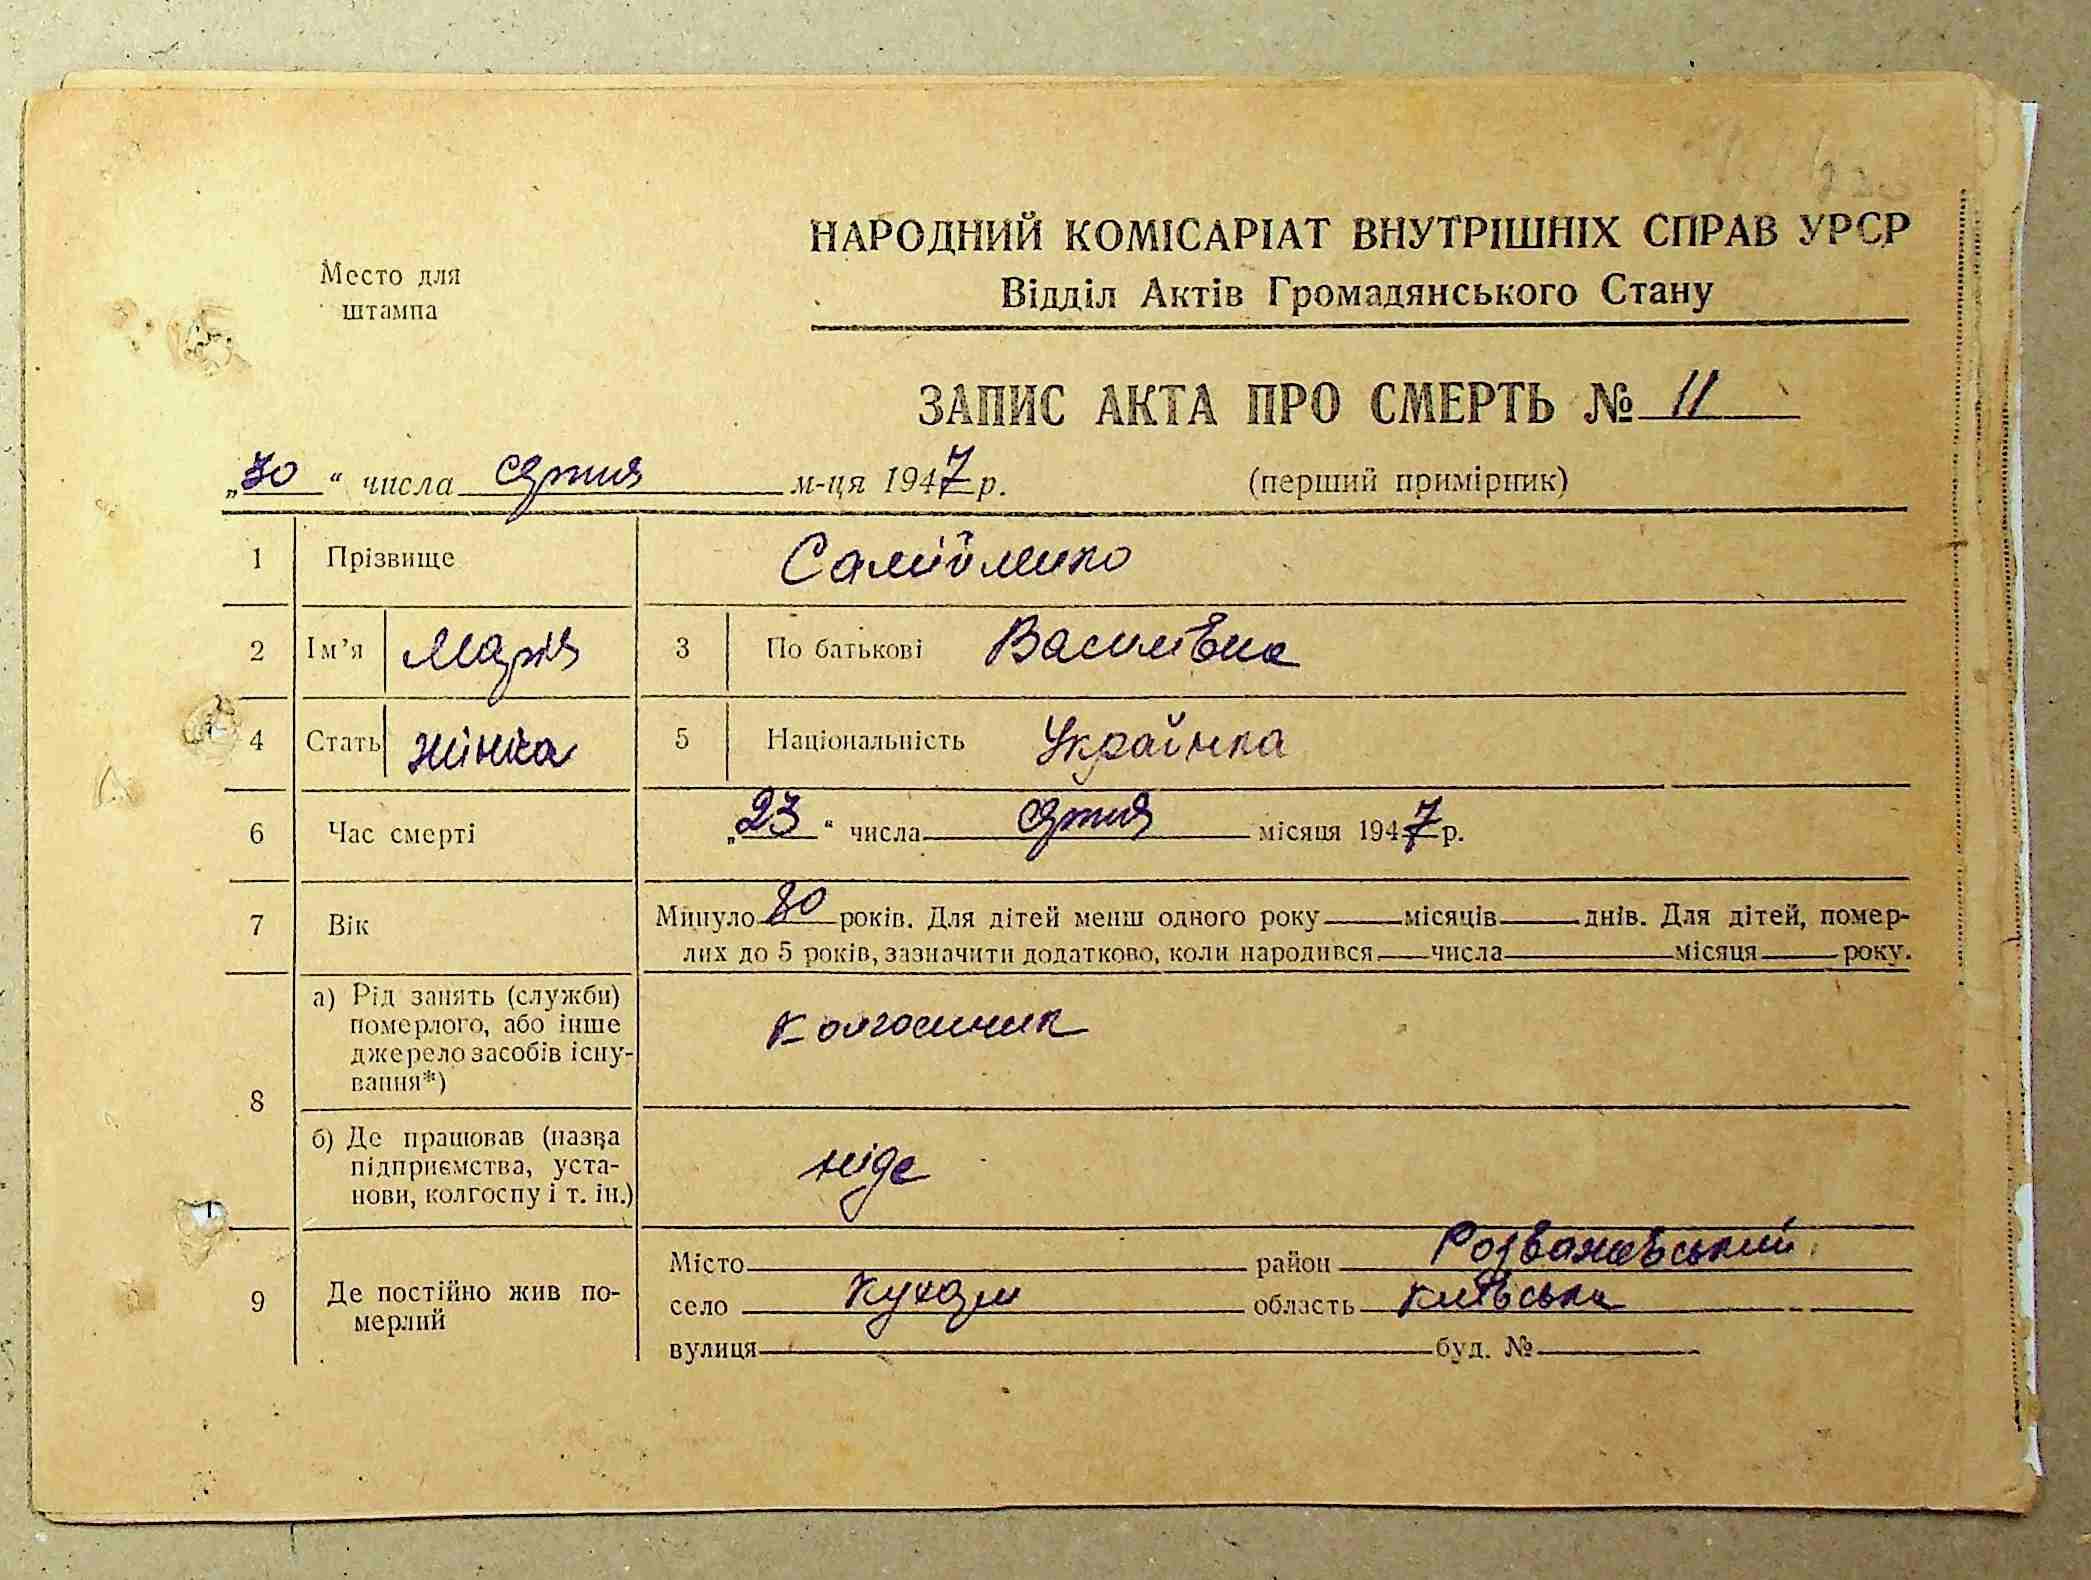 НАРОДНИЙ КОМІСАРІАТ ВНУТРІШНІХ СПРАВ УРСР
Место для
штампа
Відділ Актів Громадянського Стану
ЗАПИС АКТА ПРО СМЕРТЬ № 11
„30“ числа серпня м-ця 1947 р. (перший примірник)
1 Прізвище Самійленко
2 Ім’я Марія 3 По батькові Василівна
4 Стать жінка 5 Національність Українка
6 Час смерті „23“ числа серпня місяця 1947 р.
7 Вік Минуло 80 років. Для дітей менш одного року місяців днів. Для дітей, помер-
лих до 5 років, зазначити додатково, коли народився числа місяця року.
8 а) Рід занять (служби)
померлого, або інше
джерело засобів існу-
вання*)
колгоспник
б) Де працював (назва
підприємства, уста-
нови, колгоспу і т. ін.)
ніде
9 Де постійно жив по-
мерлий
Місто район Розважевський
село Кухари область Київська
вулиця буд. №